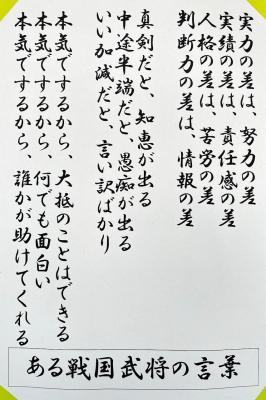 実力の差は、努力の差
実績の差は、責任感の差
人格の差は、苦労の差
判断力の差は、情報の差
真剣だと、知恵が出る
中途半端だと、愚痴が出る
いい加減だと、言い訳ばかり
本気でするから、大抵のことはできる
本気でするから、何でも面白い
本気でするから、誰かが助けてくれる
ある戦国武将の言葉